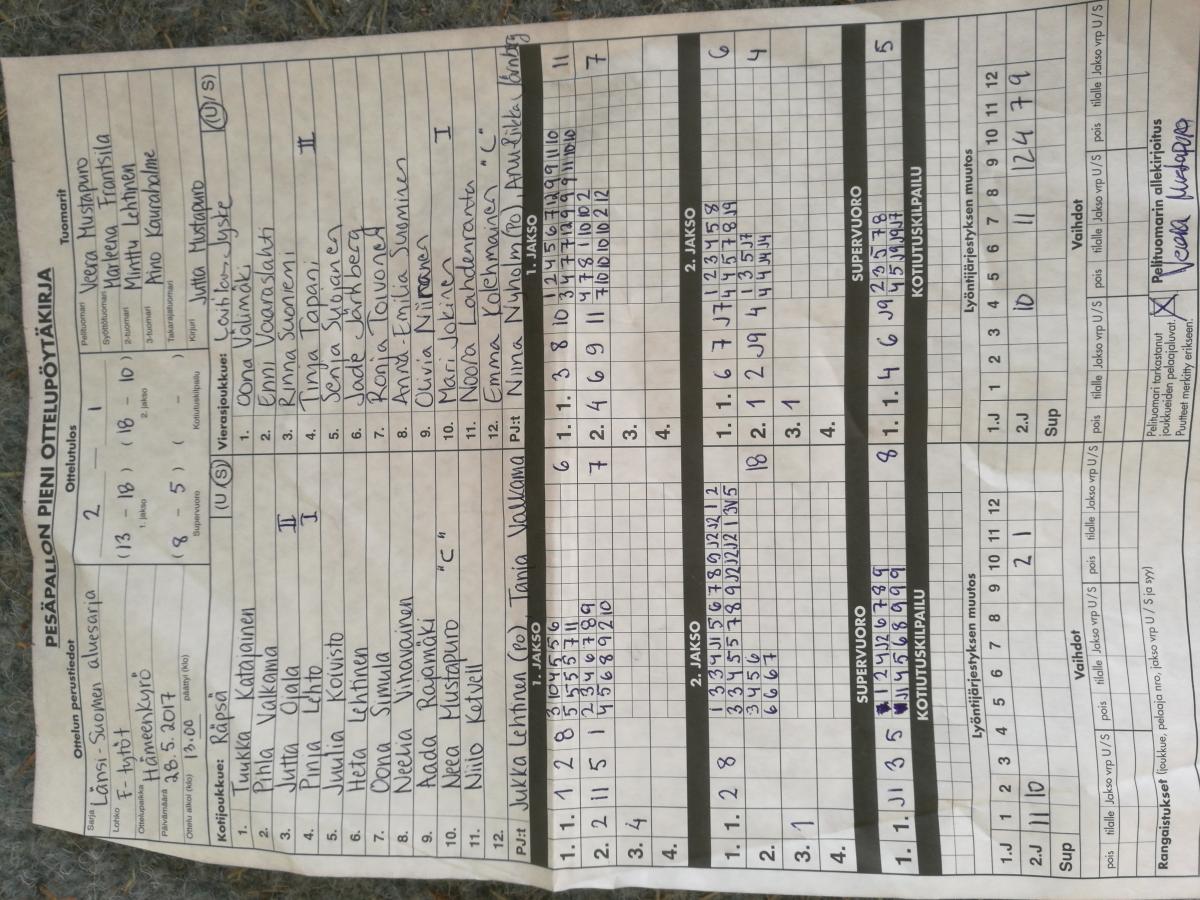 PESÄPALLON PIENI OTTELUPÖYTÄKIRJA
Ottelun perustiedot
Sarja Länsi-Suomen aluesarja
Lohko F-tytöt
Ottelupaikka Hämeenkyrö
Päivämäärä 28.5.2017
Ottelu alkoi (klo) 13.00 päättyi (klo)
Ottelutulos
2 1
(13 - 18) (18 - 10)
1. jakso 2. jakso
(8 - 5) ( - )
Supervuoro Kotiutuskilpailu
Tuomarit
Pelituomari Veera Mustapuro
Syöttötuomari Marleena Frantsila
2-tuomari Minttu Lehtinen
3-tuomari Aino Kauraholme
Takarajatuomari
Kirjuri Jutta Mustapuro
Kotijoukkue: Räpsä (U/S)
1. Tuukka Katajainen
2. Pihla Valkama
3. Jutta Ojala II
4. Pinja Lehto I
5. Juulia Koivisto
6. Heta Lehtinen
7. Oona Simula
8. Neelia Vihavainen
9. Aada Rajamäki
10. Neea Mustapuro "C"
11. Niilo Ketvell
12.
PJ:t Jukka Lehtinen (po) Tanja Valkama
Vierasjoukkue: Laitilan Jyske (U/S)
1. Oona Välimäki
2. Enni Vaaraslahti
3. Rinna Suoniemi
4. Tinja Tapani II
5. Senja Suojanen
6. Jade Järnberg
7. Ronja Toivonen
8. Anna-Emilia Suominen
9. Olivia Niinanen
10. Mari Jokinen I
11. Noora Lahdenranta
12. Emma Kolehmainen "C"
PJ:t Niina Nyholm (Po), Anu-Riikka Järnberg
1. JAKSO
1. 1. 1 2 8 3 10 4 5 5 5 6 6
5 5 5 5 7 11
2. 2 11 5 1 2 3 4 6 7 8 9 7
4 5 6 8 9 2 10
3. 4
4.
1. JAKSO
1. 1. 3 8 10 1 2 4 5 6 7 12 9 9 11 10 11
3 4 7 7 12 9 9 9 11 10 10
2. 4 6 9 11 4 7 8 1 10 10 2 7
7 10 10 10 10 2 12
3.
4.
2. JAKSO
1. 1. 2 8 1 3 3 4 J1 5 6 7 8 9 J2 J2 1 2 18
3 3 4 5 5 7 8 9 J2 J2 J2 1 3 J5
2. 3 4 5 6
6 6 6 7
3. 1
4.
2. JAKSO
1. 1. 6 7 J7 1 2 3 4 5 8 6
4 4 5 7 8 J9
2. 1 2 J9 4 1 3 5 J7 4
4 4 J4 J4
3. 1
4.
SUPERVUORO
1. 1. J1 3 5 1 2 4 J2 6 7 8 9 8
J1 4 5 6 8 9 9 9
SUPERVUORO
1. 1. 4 6 J9 2 3 5 7 8 5
4 5 J9 J9 J7
KOTIUTUSKILPAILU
KOTIUTUSKILPAILU
Lyöntijärjestyksen muutos
1.J 1 2 3 4 5 6 7 8 9 10 11 12
2.J 11 10 2 1
Sup
Lyöntijärjestyksen muutos
1.J 1 2 3 4 5 6 7 8 9 10 11 12
2.J 10 11 12 4 7 9
Sup
Vaihdot
pois tilalle Jakso vrp U/S pois tilalle Jakso vrp U/S pois tilalle Jakso vrp U/S
Vaihdot
pois tilalle Jakso vrp U/S pois tilalle Jakso vrp U/S pois tilalle Jakso vrp U/S
Rangaistukset (joukkue, pelaaja nro, jakso vrp U / S ja syy)
Pelituomari tarkastanut
joukkueiden pelaajaluvat. X
Puutteet merkitty erikseen.
Pelituomarin allekirjoitus
Veera Mustapuro